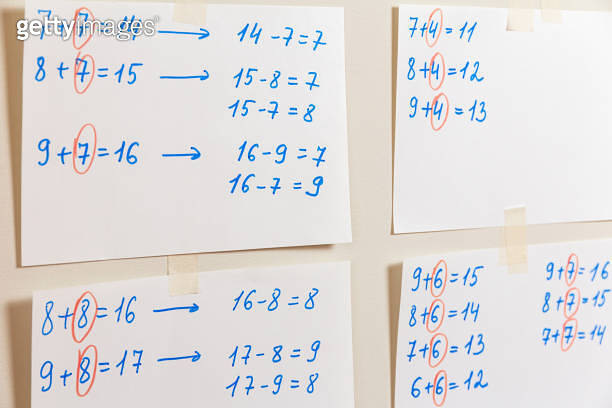 gettyimages
7+7=14 → 14-7=7
8+7=15 → 15-8=7
15-7=8
9+7=16 → 16-9=7
16-7=9
7+4=11
8+4=12
9+4=13
8+8=16 → 16-8=8
9+8=17 → 17-8=9
17-9=8
9+6=15
8+6=14
7+6=13
6+6=12
9+7=16
8+7=15
7+7=14